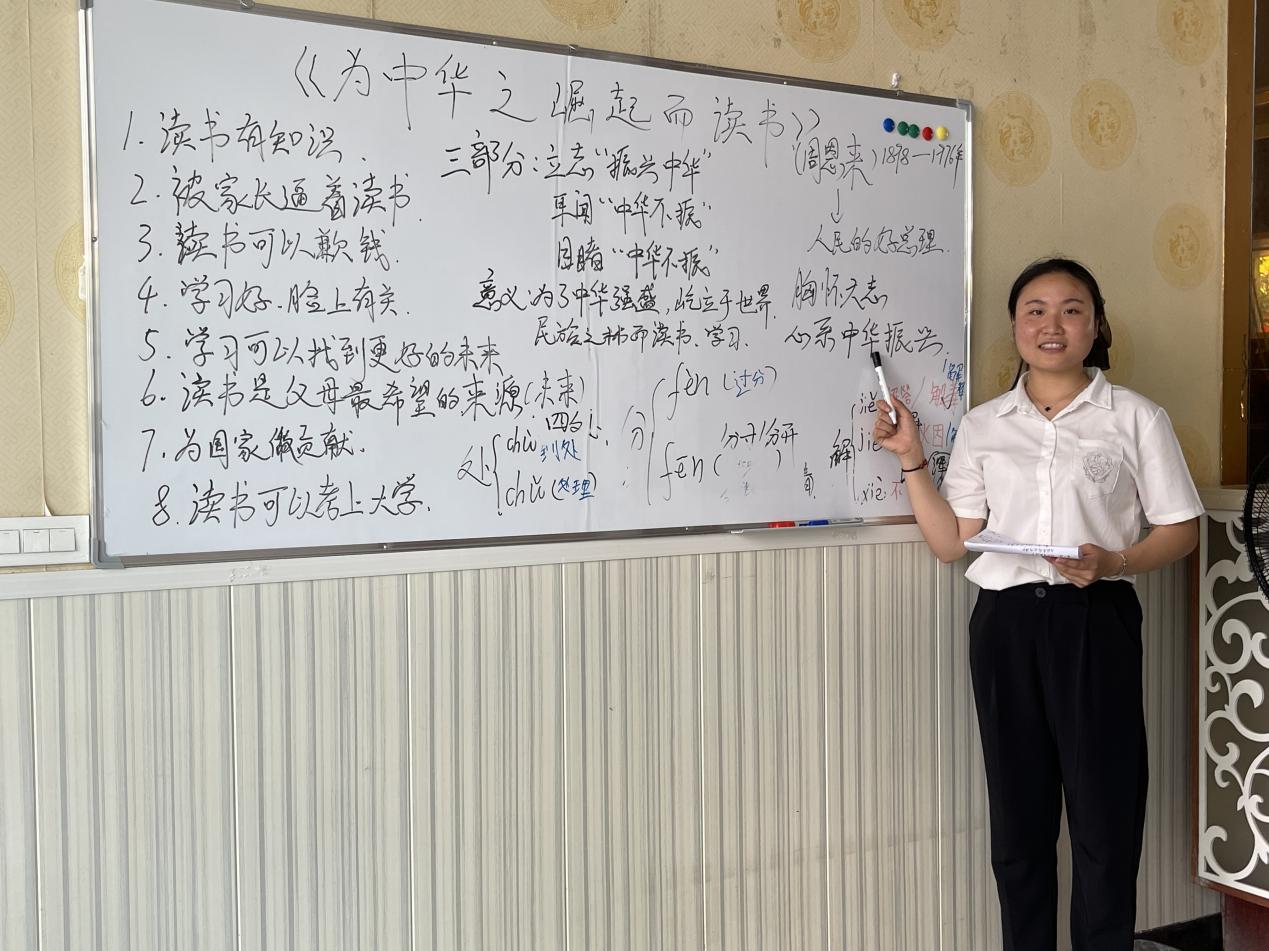 《为中华之崛起而读书》
1. 读书有知识.
2. 被家长逼着读书.
3. 读书可以赚钱.
4. 学习好.脸上有关.
5. 学习可以找到更好的未来
6. 读书是父母最希望的来源(未来)
7. 为国家做贡献.
8. 读书可以考上大学.
三部分:立志"振兴中华"
耳闻"中华不振"
目睹"中华不振"
意义:为了中华强盛,屹立于世界
民族之林而读书、学习.
(周恩来)1898—1976年
↓
人民的好总理.
胸怀大志
心系中华振兴.
处
chù 四处
到处
chǔ (处理)
分
fèn (过分)
fēn ( 分开/分开 )
解
jiě
jiè
xiè